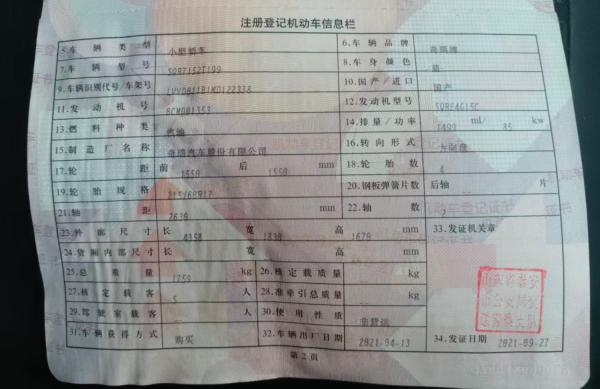 注册登记机动车信息栏
5.车辆类型 小型轿车 6.车辆品牌 奇瑞牌
7.车辆型号 SQR7152T199 8.车身颜色 蓝
9.车辆识别代号/车架号 10.国产/进口 国产
11.发动机号 12.发动机型号 SQRE4G15C
13.燃料种类 汽油 14.排量/功率 1499 ml/ 85 kw
15.制造厂名称 奇瑞汽车股份有限公司 16.转向形式 方向盘
17.轮距 前 1550 后 1550 mm 18.轮胎数 4
19.轮胎规格 215/60R17 20.钢板弹簧片数 后轴 片
21.轴距 2630 mm 22.轴数 2
23.外廓尺寸 长 4358 宽 1830 高 1670 mm 33.发证机关章
24.货厢内部尺寸 长 宽 高 mm
25.总质量 1759 kg 26.核定载质量 kg
27.核定载客 5 人 28.准牵引总质量 kg
29.驾驶室载客 人 30.使用性质 非营运
31.车辆获得方式 购买 32.车辆出厂日期 2021-04-13 34.发证日期 2021-09-27
第2页